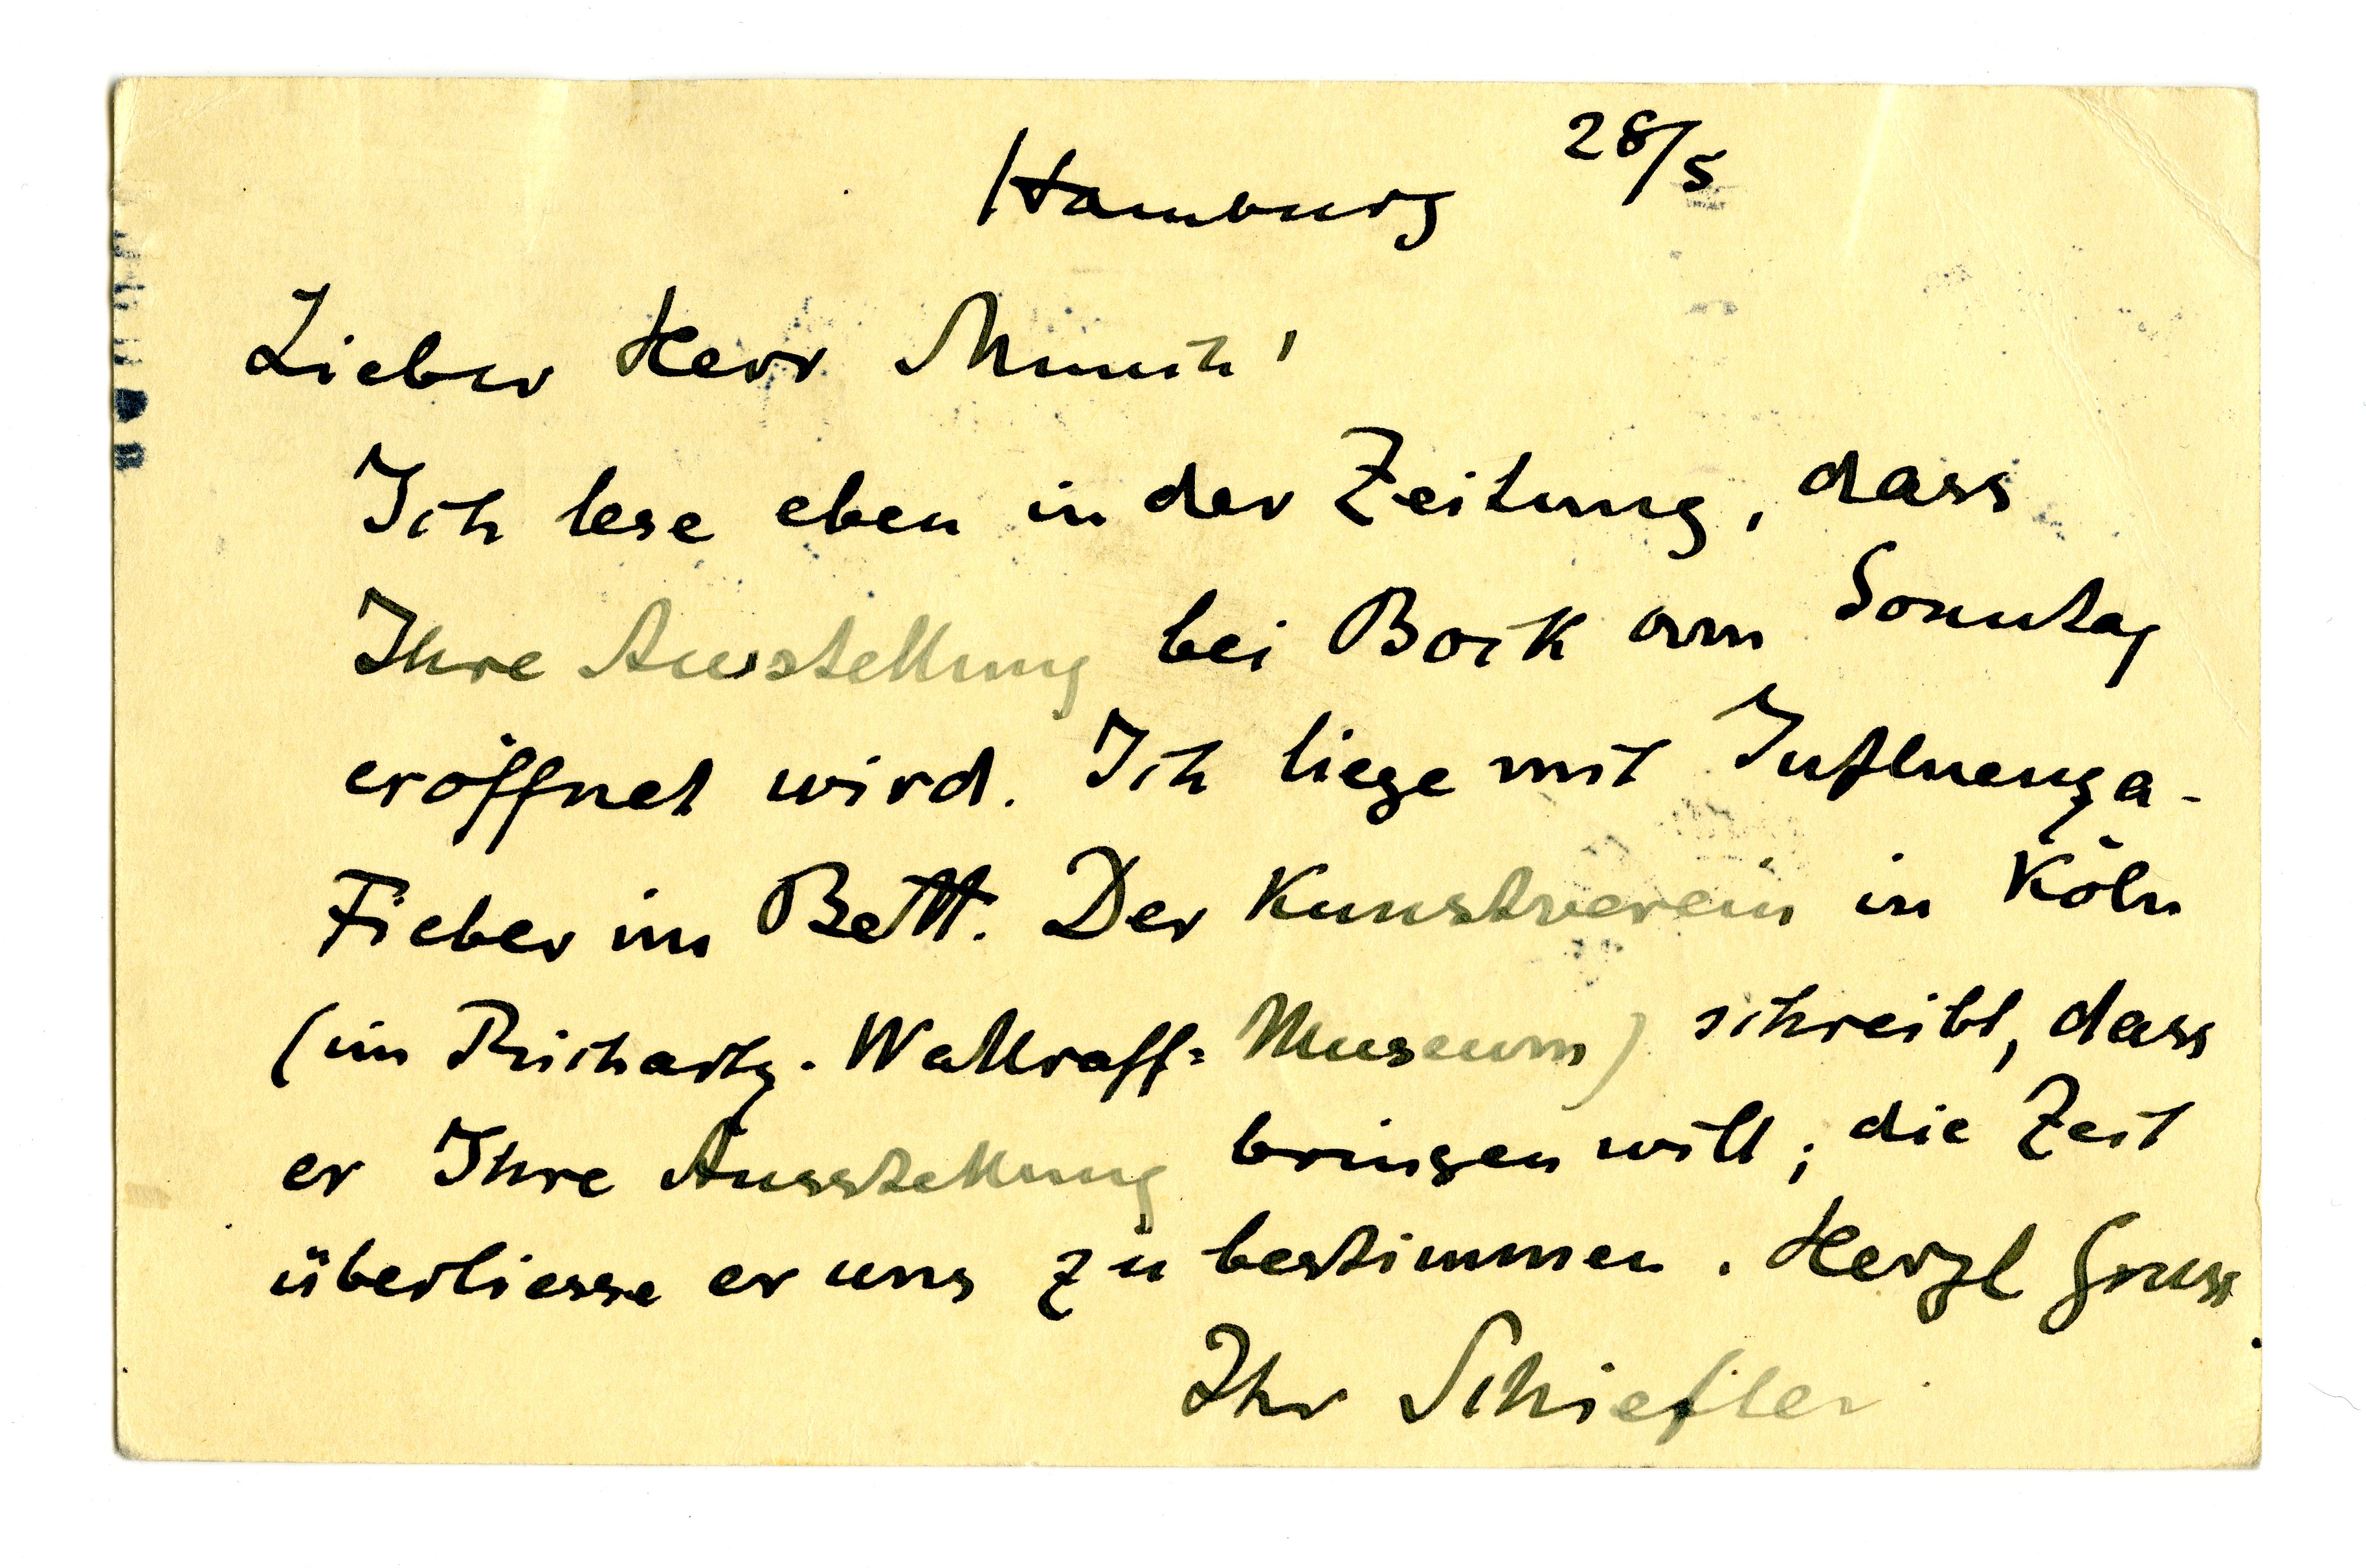 Hamburg 28/5
Lieber Herr Munch!
Ich lese eben in der Zeitung, dass
Ihre Ausstellung bei Bock am Sonntag
eröffnet wird. Ich liege mit Influenza-
Fieber im Bett. Der Kunstverein in Köln
(im Richartz-Wallraff-Museum) schreibt, dass
er Ihre Ausstellung bringen will; die Zeit
überliesse er uns zu bestimmen. Herzl Gruss
Ihr Schiefler